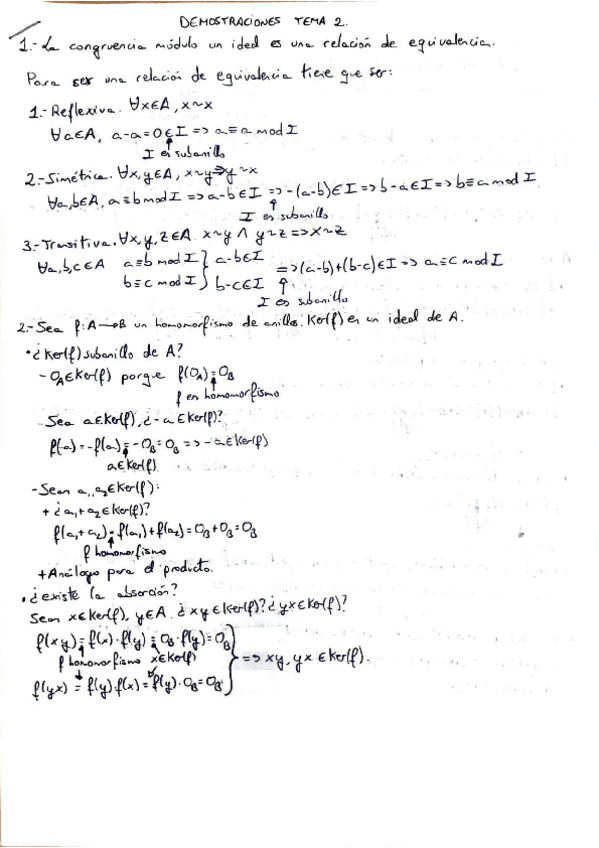 DEMOSTRACIONES TEMA 2.
1.- La congruencia módulo un ideal es una relación de equivalencia.
Para ser una relación de equivalencia tiene que ser:
1.- Reflexiva. ∀x∈A, x~x
∀a∈A, a-a=0∈I => a≡a mod I
I es subanillo
2.- Simétrica. ∀x,y∈A, x~y=>y~x
∀a,b∈A, a≡b mod I => a-b∈I => -(a-b)∈I => b-a∈I => b≡a mod I
I es subanillo
3.- Transitiva. ∀x,y,z∈A x~y ∧ y~z => x~z
∀a,b,c∈A a≡b mod I } a-b∈I
b≡c mod I } b-c∈I => (a-b)+(b-c)∈I => a≡c mod I
I es subanillo
2.- Sea f: A→B un homomorfismo de anillos. Ker(f) es un ideal de A.
• ¿Ker(f) subanillo de A?
- 0_A∈Ker(f) porque f(0_A)=0_B
f es homomorfismo
- Sea a∈Ker(f), ¿-a∈Ker(f)?
f(-a)=-f(a)=-0_B=0_B => -a∈Ker(f)
a∈Ker(f)
- Sean a₁,a₂∈Ker(f):
+ ¿a₁+a₂∈Ker(f)?
f(a₁+a₂)=f(a₁)+f(a₂)=0_B+0_B=0_B
f homomorfismo
+ Análogo para el producto.
• ¿existe la absorción?
Sean x∈Ker(f), y∈A. ¿xy∈Ker(f)? ¿yx∈Ker(f)?
f(xy)=f(x)·f(y)=0_B·f(y)=0_B
f homomorfismo x∈Ker(f) } => xy, yx ∈Ker(f).
f(yx)=f(y)·f(x)=f(y)·0_B=0_B